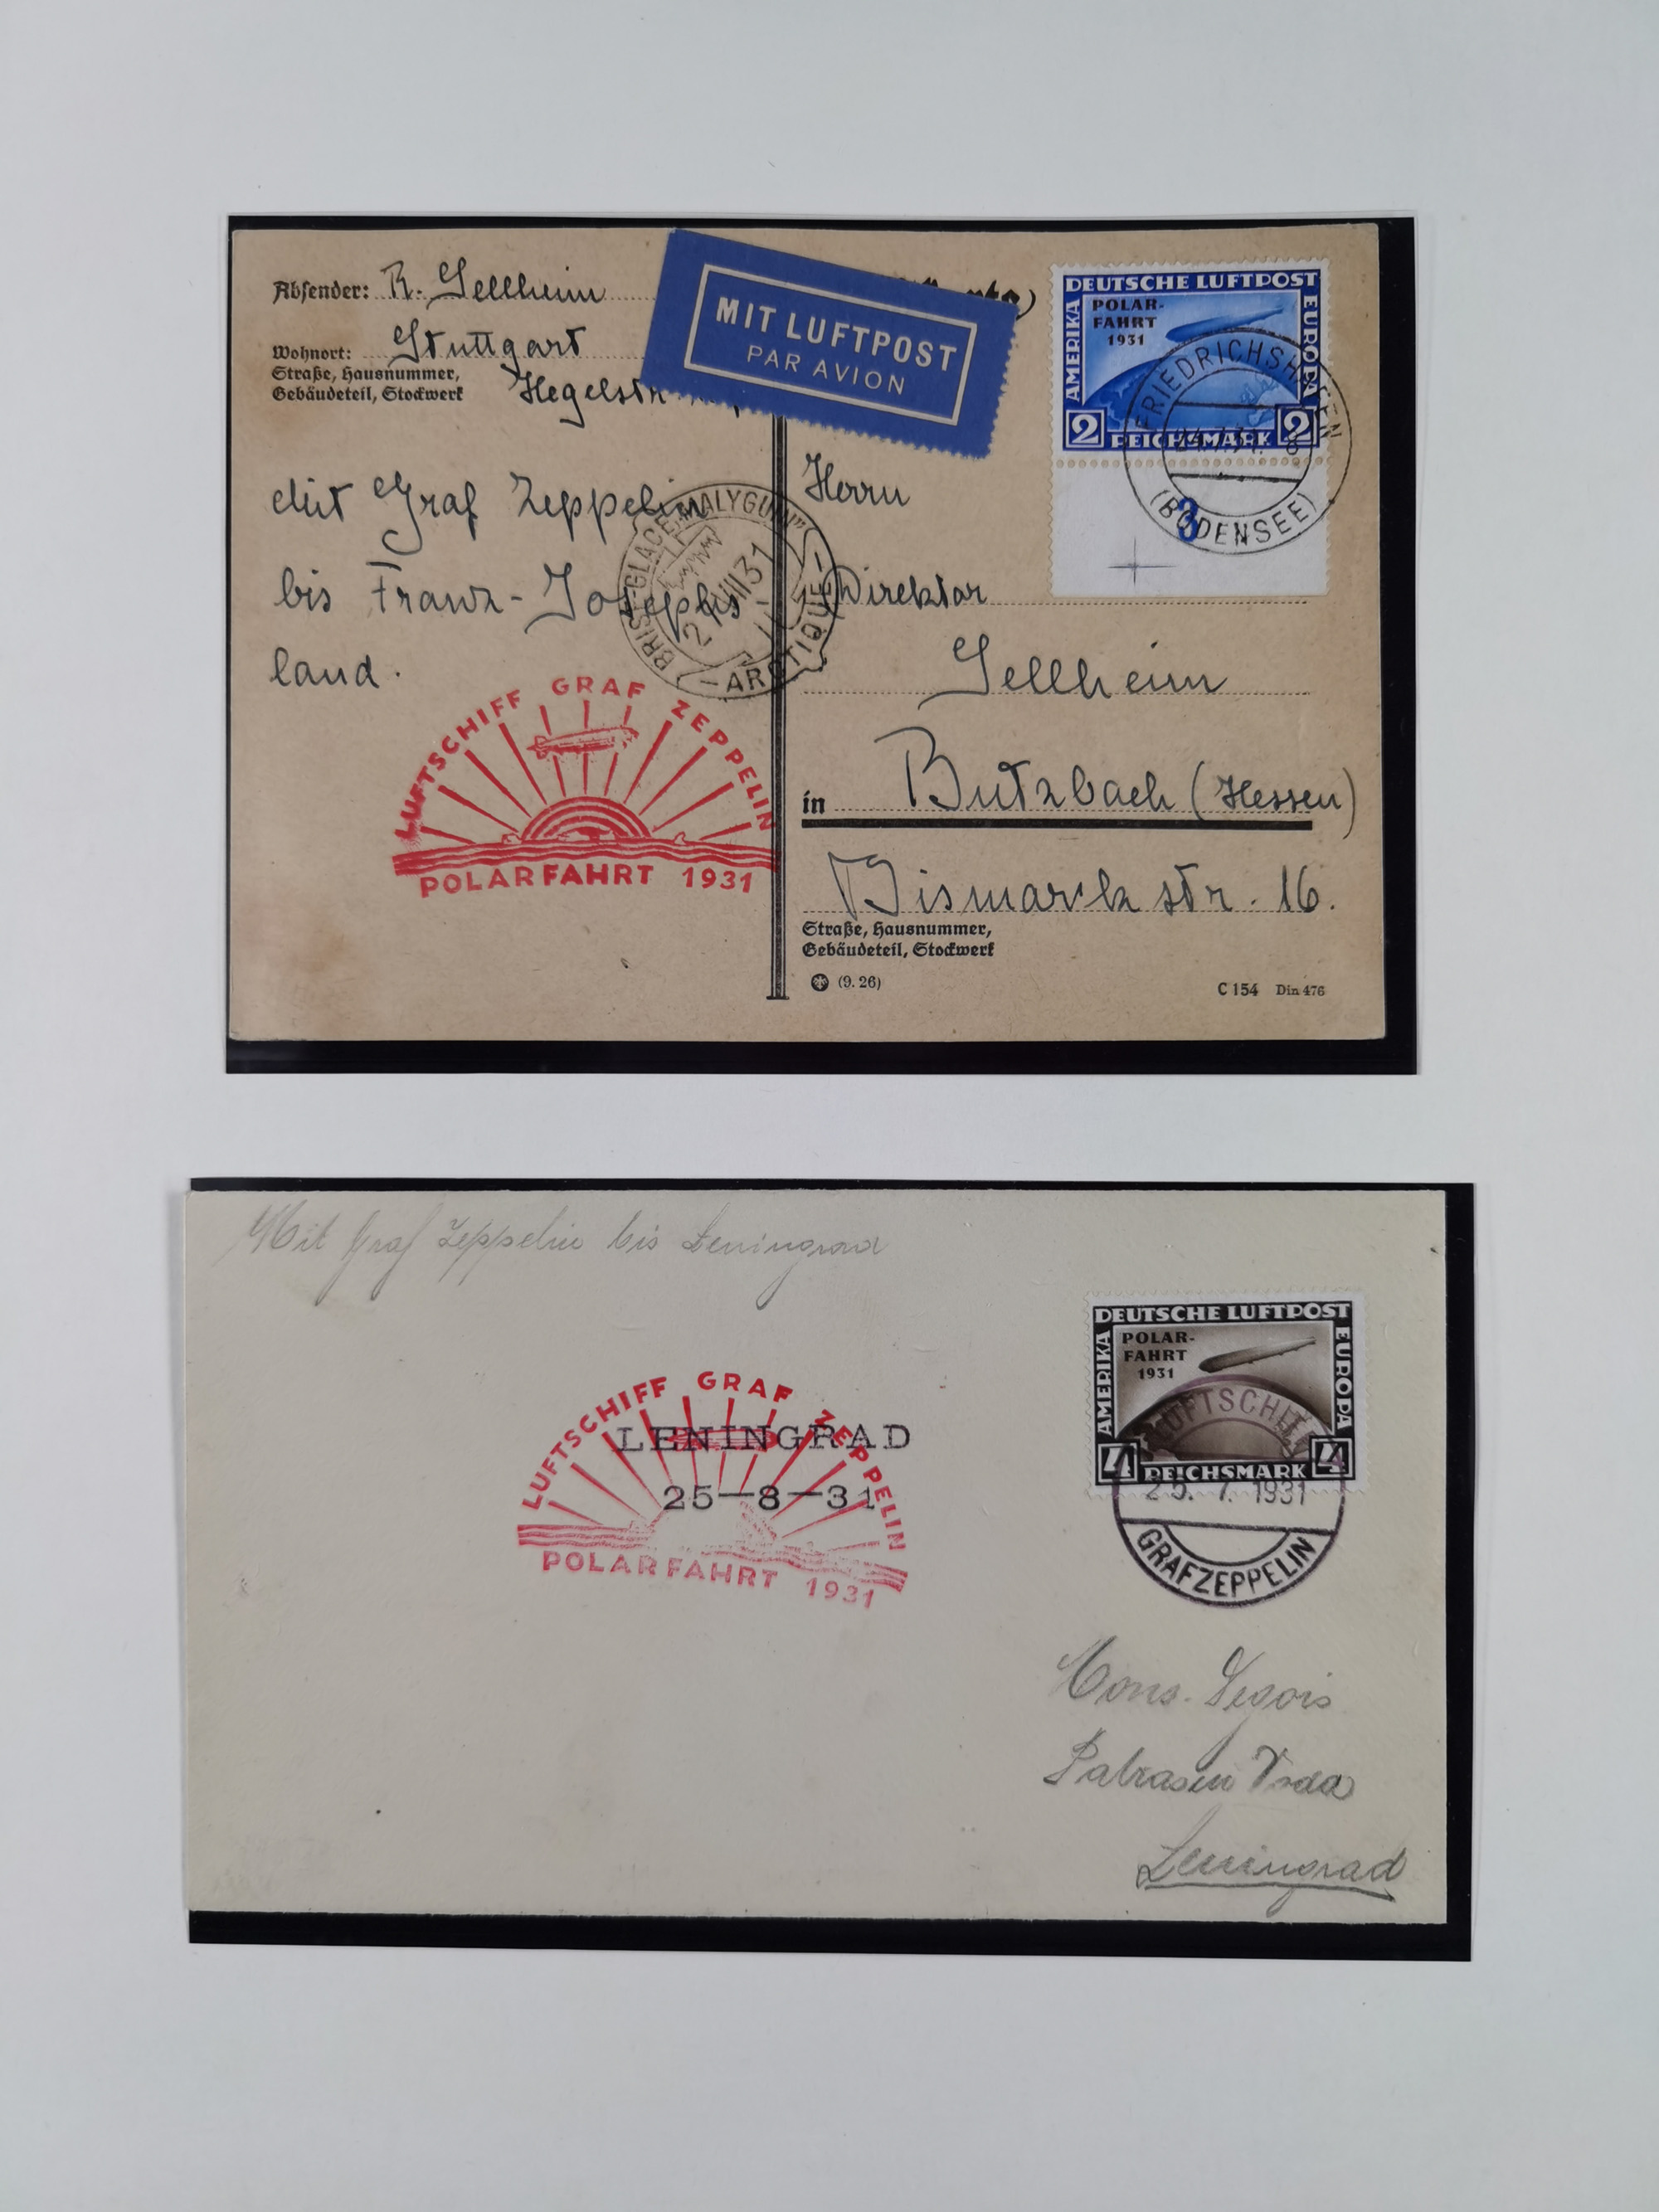 Absender: R. Sellheim
Wohnort: Stuttgart
Straße, Hausnummer,
Gebäudeteil, Stockwerk
Hegelstr.
MIT LUFTPOST
PAR AVION
DEUTSCHE LUFTPOST
AMERIKA
EUROPA
POLAR-
FAHRT
1931
2 REICHSMARK 2
FRIEDRICHSHAFEN
(BODENSEE)
3
Mit Graf Zeppelin
bis Franz-Josephs
land.
BRISE-GLACE „MALYGUIN”
31
-ARCTIQUE-
LUFTSCHIFF GRAF ZEPPELIN
POLARFAHRT 1931
Herrn
Direktor
Sellheim
in Butzbach (Hessen)
Bismarckstr. 16.
Straße, Hausnummer,
Gebäudeteil, Stockwerk
(9. 26)
C 154 Din 476
Mit Graf Zeppelin bis Leningrad
DEUTSCHE LUFTPOST
AMERIKA
EUROPA
POLAR-
FAHRT
1931
4 REICHSMARK 4
LUFTSCHIFF
25. 7. 1931
GRAF ZEPPELIN
LUFTSCHIFF GRAF ZEPPELIN
LENINGRAD
25-8-31
POLARFAHRT 1931
Cons.
Leningrad